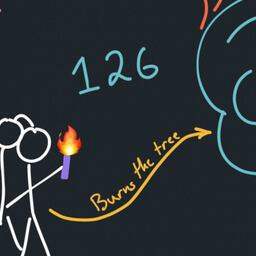 126
Burns the tree